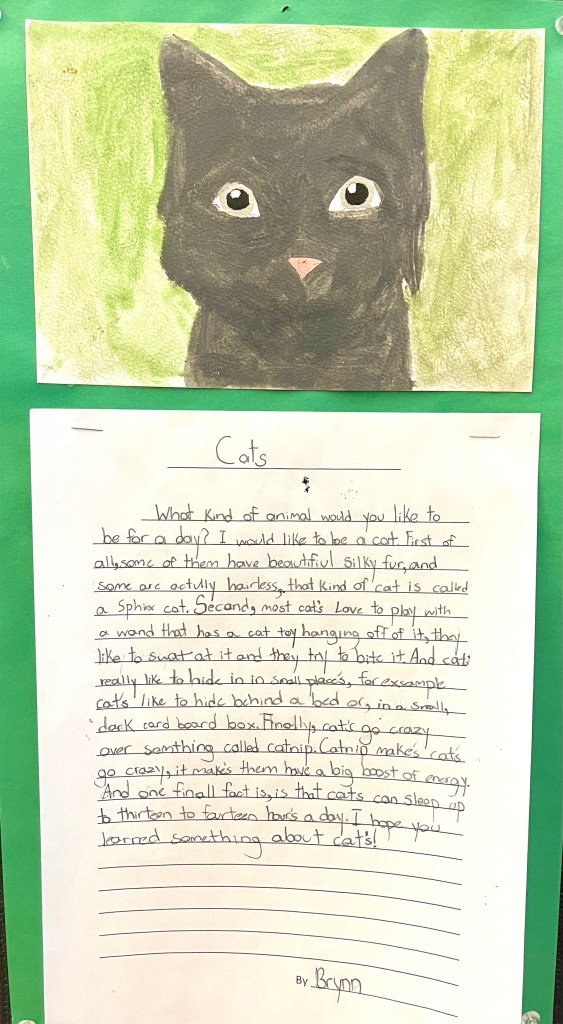 Cats
What kind of animal would you like to
be for a day? I would like to be a cat. First of
all, some of them have beautiful silky fur, and
some are actully hairless, that kind of cat is called
a Sphinx cat. Second, most cat's Love to play with
a wand that has a cat toy hanging off of it, they
like to swat at it and they try to bite it. And cat's
really like to hide in in small place's, for exsample
cat's like to hide behind a bed or, in a small,
dark card board box. Finally, cat's go crazy
over somthing called catnip. Catnip make's cat's
go crazy, it make's them have a big boost of energy.
And one finall fact is, is that cats can sleep up
to thirteen to fourteen hour's a day. I hope you
learred something about cat's!
By Brynn